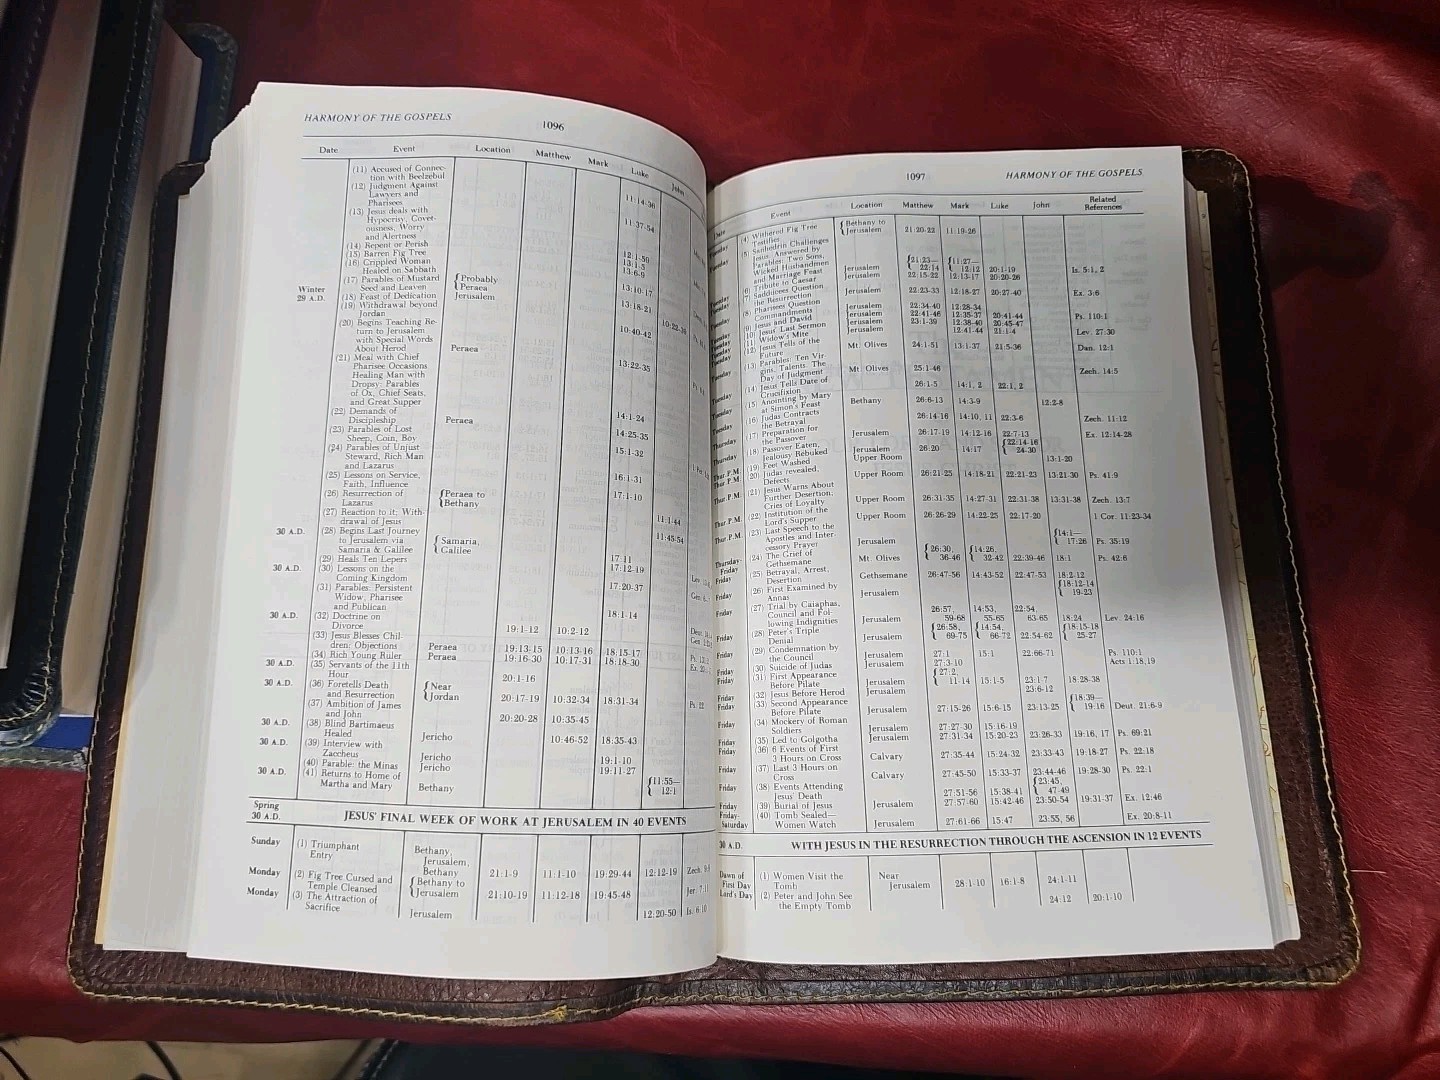 HARMONY OF THE GOSPELS
1096
Date Event Location Matthew Mark Luke John
(11) Accused of Connec-
tion with Beelzebul 11:14-36
(12) Judgment Against
Lawyers and
Pharisees 11:37-54
(13) Jesus deals with
Hypocrisy, Covet-
ousness, Worry
and Alertness 12:1-59
(14) Repent or Perish 13:1-5
(15) Barren Fig Tree 13:6-9
(16) Crippled Woman
Healed on Sabbath 13:10-17
(17) Parables of Mustard
Seed and Leaven 13:18-21
Winter
29 A.D.
(18) Feast of Dedication Jerusalem
{Probably
{Peraea
(19) Withdrawal beyond
Jordan 10:40-42
(20) Begins Teaching Re-
turn to Jerusalem
with Special Words
About Herod Peraea 13:22-35
(21) Meal with Chief
Pharisee Occasions
Healing Man with
Dropsy: Parables
of Ox, Chief Seats,
and Great Supper 14:1-24
(22) Demands of
Discipleship Peraea 14:25-35
(23) Parables of Lost
Sheep, Coin, Boy 15:1-32
(24) Parables of Unjust
Steward, Rich Man
and Lazarus 16:1-31
(25) Lessons on Service,
Faith, Influence 17:1-10
(26) Resurrection of
Lazarus {Peraea to
Bethany 11:1-44
(27) Reaction to it; With-
drawal of Jesus 11:45-54
30 A.D. (28) Begins Last Journey
to Jerusalem via
Samaria & Galilee {Samaria,
Galilee 17:11
(29) Heals Ten Lepers 17:12-19
30 A.D. (30) Lessons on the
Coming Kingdom 17:20-37
(31) Parables: Persistent
Widow, Pharisee
and Publican 18:1-14
30 A.D. (32) Doctrine on
Divorce 19:1-12 10:2-12
(33) Jesus Blesses Chil-
dren: Objections Peraea 19:13-15 10:13-16 18:15-17
(34) Rich Young Ruler Peraea 19:16-30 10:17-31 18:18-30
30 A.D. (35) Servants of the 11th
Hour 20:1-16
30 A.D. (36) Foretells Death
and Resurrection {Near
Jordan 20:17-19 10:32-34 18:31-34
(37) Ambition of James
and John 20:20-28 10:35-45
30 A.D. (38) Blind Bartimaeus
Healed Jericho 10:46-52 18:35-43
30 A.D. (39) Interview with
Zaccheus Jericho 19:1-10
(40) Parable: the Minas Jericho 19:11-27
30 A.D. (41) Returns to Home of
Martha and Mary Bethany {11:55—
12:1
Spring
30 A.D. JESUS' FINAL WEEK OF WORK AT JERUSALEM IN 40 EVENTS
Sunday (1) Triumphant
Entry Bethany,
Jerusalem,
Bethany 21:1-9 11:1-10 19:29-44 12:12-19 Zech. 9:9
Monday (2) Fig Tree Cursed and
Temple Cleansed {Bethany to
Jerusalem 21:10-19 11:12-18 19:45-48
Monday (3) The Attraction of
Sacrifice Jerusalem 12:20-50 Is. 6:10
1097 HARMONY OF THE GOSPELS
Event Location Matthew Mark Luke John Related
References
(4) Withered Fig Tree
Testifies {Bethany to
Jerusalem 21:20-22 11:19-26
(5) Sanhedrin Challenges
Jesus. Answered by
Parables: Two Sons,
Wicked Husbandmen
and Marriage Feast Jerusalem {21:23—
22:14 {11:27—
12:12 20:1-19 Is. 5:1, 2
(6) Tribute to Caesar Jerusalem 22:15-22 12:13-17 20:20-26
(7) Sadducees Question
the Resurrection Jerusalem 22:23-33 12:18-27 20:27-40 Ex. 3:6
(8) Pharisees Question
Commandments Jerusalem 22:34-40 12:28-34
(9) Jesus and David Jerusalem 22:41-46 12:35-37 20:41-44 Ps. 110:1
(10) Jesus' Last Sermon Jerusalem 23:1-39 12:38-40 20:45-47
(11) Widow's Mite 12:41-44 21:1-4 Lev. 27:30
(12) Jesus Tells of the
Future Mt. Olives 24:1-51 13:1-37 21:5-36 Dan. 12:1
(13) Parables: Ten Vir
gins, Talents. The
Day of Judgment Mt. Olives 25:1-46 Zech. 14:5
(14) Jesus Tells Date of
Crucifixion 26:1-5 14:1, 2 22:1, 2
(15) Anointing by Mary
at Simon's Feast Bethany 26:6-13 14:3-9 12:2-8
(16) Judas Contracts
the Betrayal 26:14-16 14:10, 11 22:3-6 Zech. 11:12
(17) Preparation for
the Passover Jerusalem 26:17-19 14:12-16 22:7-13 Ex. 12:14-28
(18) Passover Eaten,
Jealousy Rebuked Jerusalem 26:20 14:17 {22:14-16
24-30
Thur. P.M. (19) Feet Washed Upper Room 13:1-20
Thur. P.M. (20) Judas revealed,
Defects Upper Room 26:21-25 14:18-21 22:21-23 13:21-30 Ps. 41:9
Thur. P.M. (21) Jesus Warns About
Further Desertion,
Cries of Loyalty Upper Room 26:31-35 14:27-31 22:31-38 13:31-38 Zech. 13:7
Thur. P.M. (22) Institution of the
Lord's Supper Upper Room 26:26-29 14:22-25 22:17-20 1 Cor. 11:23-34
Thur. P.M. (23) Last Speech to the
Apostles and Inter-
cessory Prayer Jerusalem {14:1—
17:26 Ps. 35:19
Thursday-
Friday (24) The Grief of
Gethsemane Mt. Olives {26:30,
36-46 {14:26,
32-42 22:39-46 18:1 Ps. 42:6
Friday (25) Betrayal, Arrest,
Desertion Gethsemane 26:47-56 14:43-52 22:47-53 18:2-12
Friday (26) First Examined by
Annas Jerusalem {18:12-14
19-23
Friday (27) Trial by Caiaphas,
Council and Fol-
lowing Indignities Jerusalem 26:57,
59-68 14:53,
55-65 22:54,
63-65 18:24 Lev. 24:16
Friday (28) Peter's Triple
Denial Jerusalem {26:58,
69-75 {14:54,
66-72 22:54-62 {18:15-18
25-27
Friday (29) Condemnation by
the Council Jerusalem 27:1 15:1 22:66-71 Ps. 110:1
Friday (30) Suicide of Judas Jerusalem 27:3-10 Acts 1:18,19
Friday (31) First Appearance
Before Pilate Jerusalem {27:2,
11-14 15:1-5 23:1-7 18:28-38
Friday (32) Jesus Before Herod Jerusalem 23:6-12
Friday (33) Second Appearance
Before Pilate Jerusalem 27:15-26 15:6-15 23:13-25 {18:39—
19:16 Deut. 21:6-9
Friday (34) Mockery of Roman
Soldiers Jerusalem 27:27-30 15:16-19
Friday (35) Led to Golgotha Jerusalem 27:31-34 15:20-23 23:26-33 19:16, 17 Ps. 69:21
Friday (36) 6 Events of First
3 Hours on Cross Calvary 27:35-44 15:24-32 23:33-43 19:18-27 Ps. 22:18
Friday (37) Last 3 Hours on
Cross Calvary 27:45-50 15:33-37 23:44-46 19:28-30 Ps. 22:1
(38) Events Attending
Jesus' Death 27:51-56 15:38-41 {23:45,
47-49
Friday (39) Burial of Jesus Jerusalem 27:57-60 15:42-46 23:50-54 19:31-37 Ex. 12:46
Friday-
Saturday (40) Tomb Sealed—
Women Watch Jerusalem 27:61-66 15:47 23:55, 56 Ex. 20:8-11
30 A.D. WITH JESUS IN THE RESURRECTION THROUGH THE ASCENSION IN 12 EVENTS
Dawn of
First Day (1) Women Visit the
Tomb Near
Jerusalem 28:1-10 16:1-8 24:1-11
Lord's Day (2) Peter and John See
the Empty Tomb 24:12 20:1-10